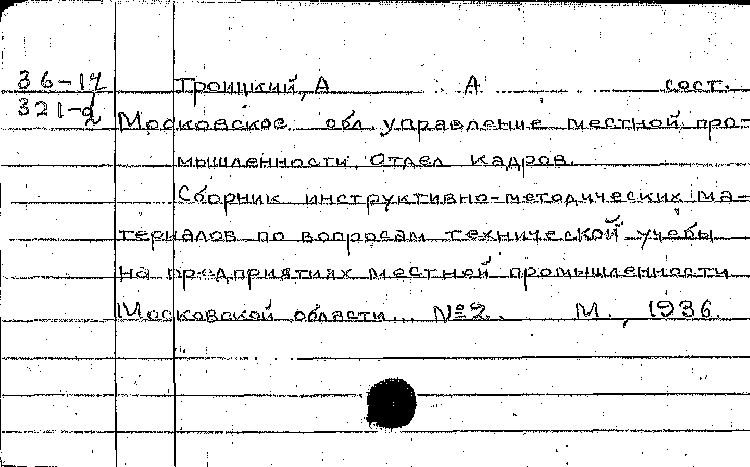 36-17
321-2
Троицкий, А А сост.
Московское обл. управление местной про-
мышленности. Отдел кадров.
Сборник инструктивно-методических ма-
териалов по вопросам технической учебы
на предприятиях местной промышленности
Московской области... №2. М., 1936.